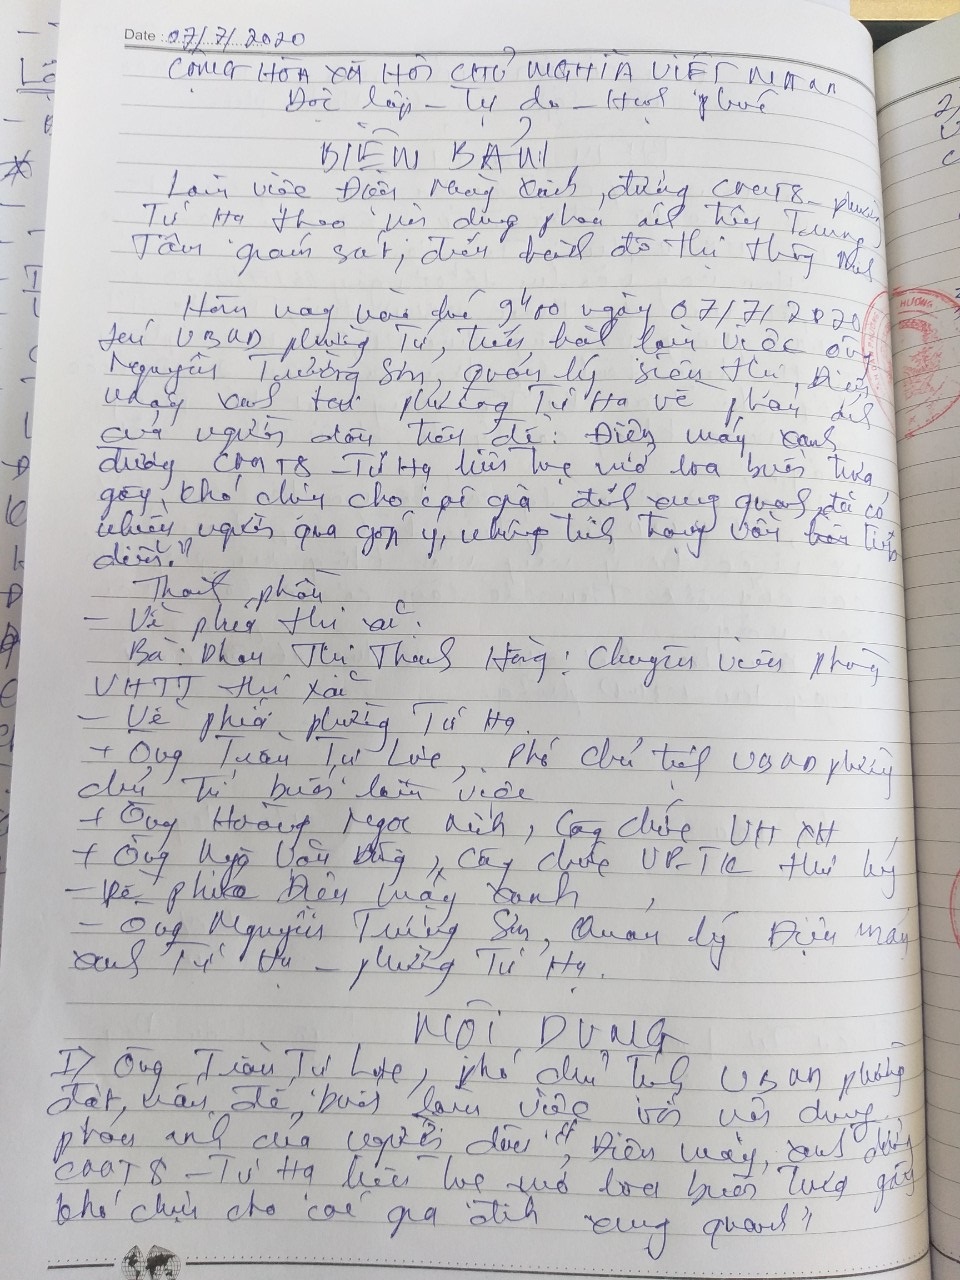 Date : 07/7/2020
CỘNG HÒA XÃ HỘI CHỦ NGHĨA VIỆT NAM
Độc lập - Tự do - Hạnh phúc
BIÊN BẢN
Làm việc Điện máy Xanh, đường CMT8 - phường
Tứ Hạ theo nội dung phản ánh trên Trung
Tâm giám sát, điều hành đô thị thông minh
Hôm nay vào lúc 9h00 ngày 07/7/2020
tại UBND phường Tứ, tiến hành làm việc ông
Nguyễn Trường Sơn, quản lý siêu thị Điện
máy xanh tại phường Tứ Hạ về phản ánh
của người dân tiêu đề: Điện máy xanh
đường CMT8 - Tứ Hạ liên tục mở loa buổi trưa,
gây khó chịu cho các gia đình xung quanh, đã có
nhiều người qua góp ý, nhưng tình trạng vẫn tiếp
diễn."
Thành phần
- Về phía thị xã:
Bà: Phan Thị Thanh Hằng: Chuyên viên phòng
VHTT thị xã
- Về phía phường Tứ Hạ.
+ Ông Trần Tự Lực, Phó chủ tịch UBND phường
chủ trì buổi làm việc
+ Ông Hoàng Ngọc Minh, Công chức VH XH
+ Ông Ngô Văn, Công chức VP-TK thư ký
- Về phía Điện máy xanh,
- Ông Nguyễn Trường Sơn, Quản lý Điện máy
xanh Tứ Hạ - phường Tứ Hạ.
NỘI DUNG
I> Ông Trần Tự Lực, phó chủ tịch UBND phường
đặt vấn đề buổi làm việc với nội dung
phản ánh của người dân "Điện máy xanh đường
CMT8 - Tứ Hạ liên tục mở loa buổi trưa gây
khó chịu cho các gia đình xung quanh"